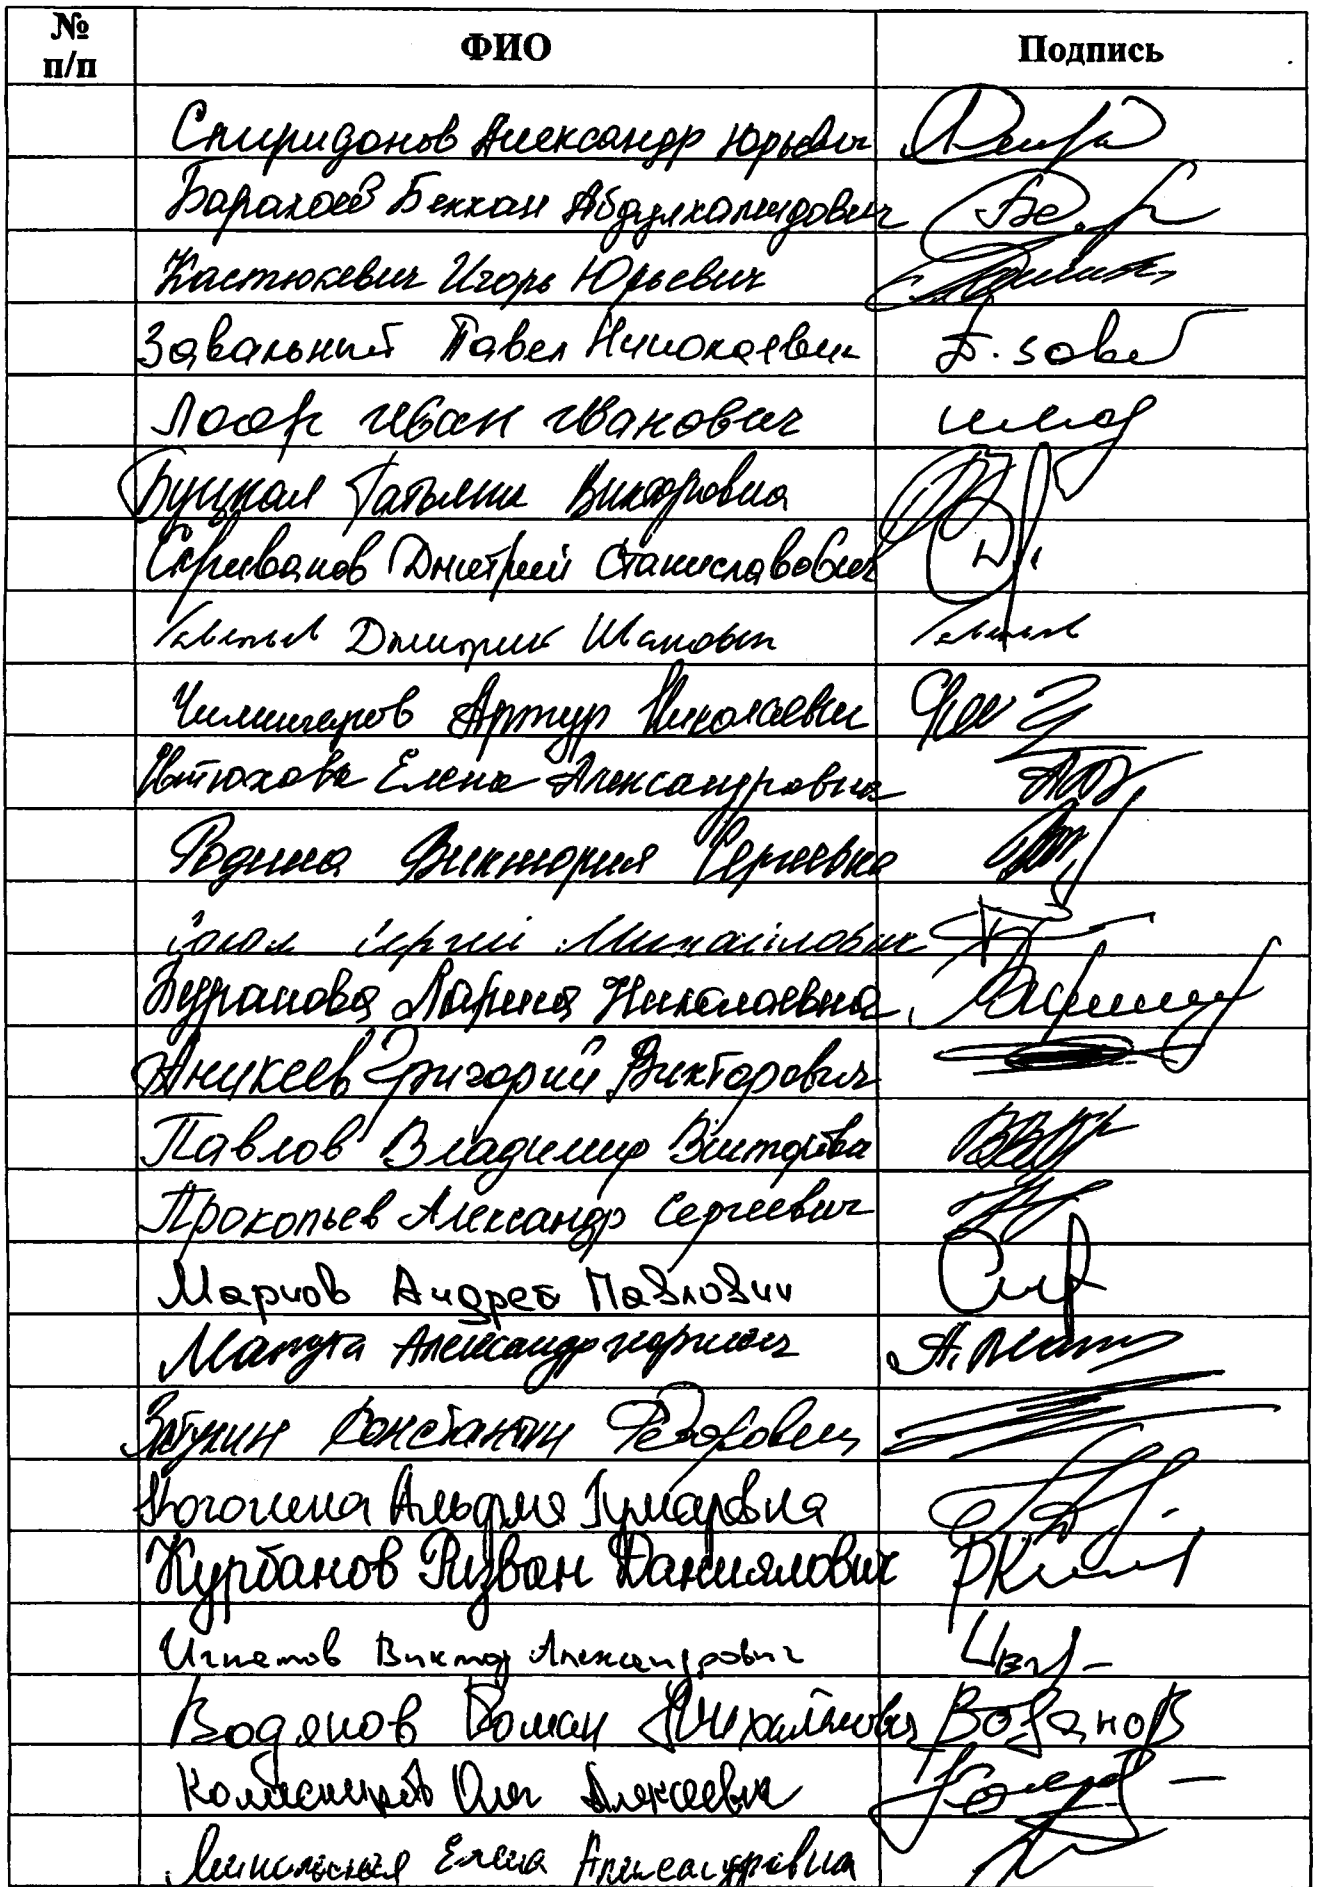 № п/п ФИО Подпись
Спиридонов Александр Юрьевич
Барахоев Бекхан Абдулхамидович
Кастюкевич Игорь Юрьевич
Завальный Павел Николаевич
Лоор Иван Иванович
Буцкая Татьяна Викторовна
Скриванов Дмитрий Станиславович
Дмитрий Иванович
Чилингаров Артур Николаевич
Ивтюхова Елена Александровна
Родина Виктория Сергеевна
Сергей Михайлович
Буранова Лариса Николаевна
Аникеев Григорий Викторович
Павлов Владимир Викторович
Прокопьев Александр Сергеевич
Марков Андрей Павлович
Мажуга Александр Георгиевич
Затулин Константин Федорович
Когогина Альфия Гумаровна
Курбанов Ризван Даниялович
Игнатов Виктор Александрович
Водянов Роман Михайлович Водянов
Колесников Олег Алексеевич
Елена Александровна